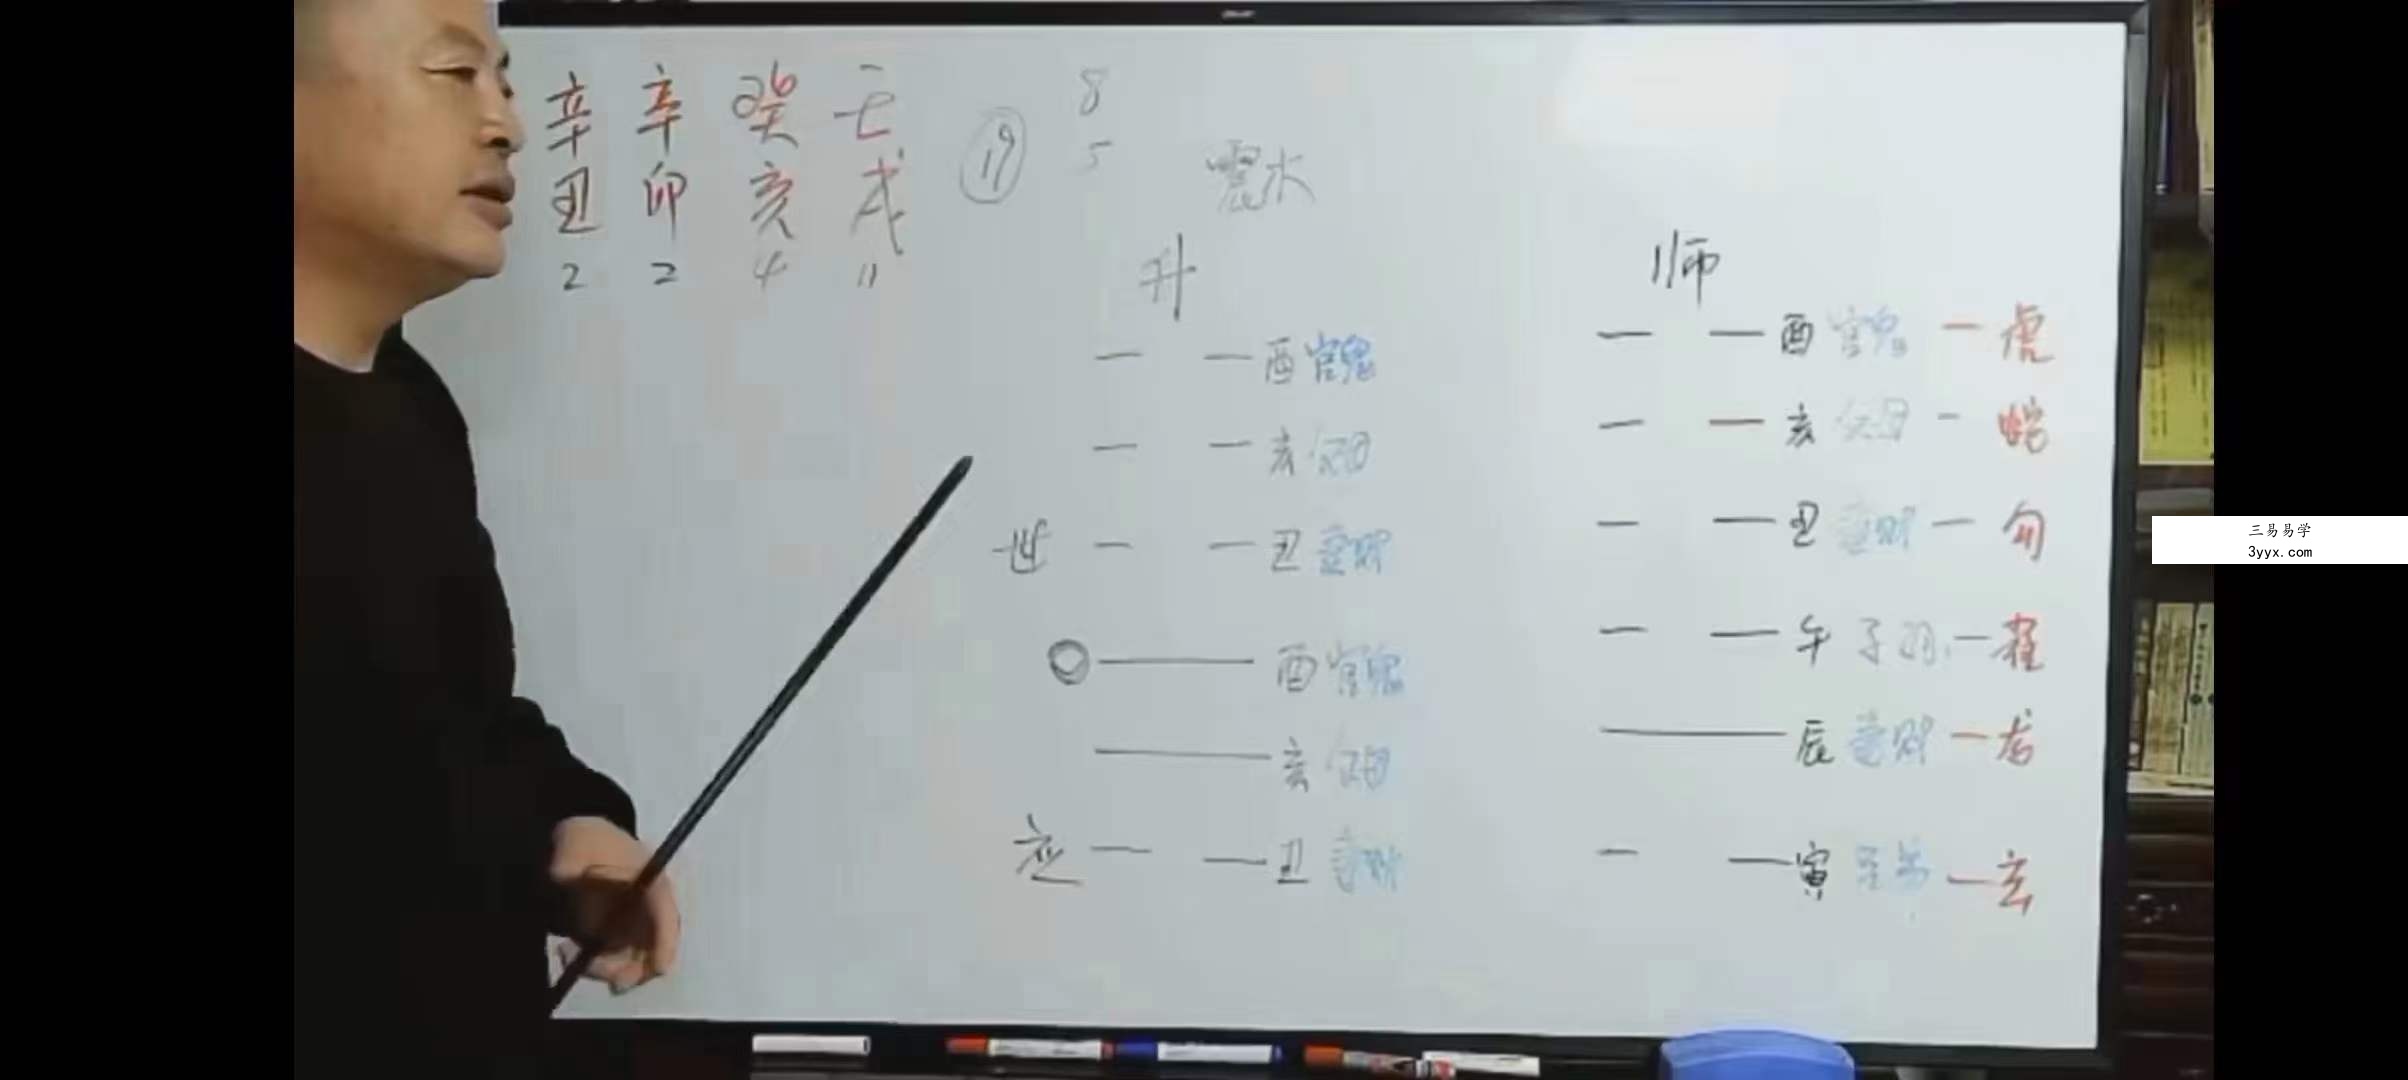 辛 辛 癸 壬
丑 卯 亥 戌
2 2 4 11
19
8
5
震木
升
酉 官鬼
亥 父母
世 丑 妻财
酉 官鬼
亥 父母
应 丑 妻财
师
酉 官鬼 虎
亥 父母 蛇
丑 妻财 勾
午 子孙 雀
辰 妻财 龙
寅 兄弟 玄
三易易学
3yyx.com